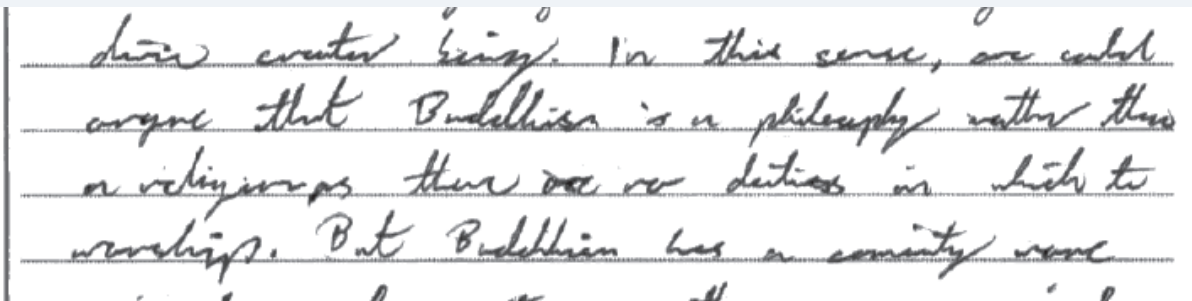 divine creator being. In this sense, one could
argue that Buddhism is a philosophy rather than
a religion as there are no deities in which to
worship. But Buddhism has a